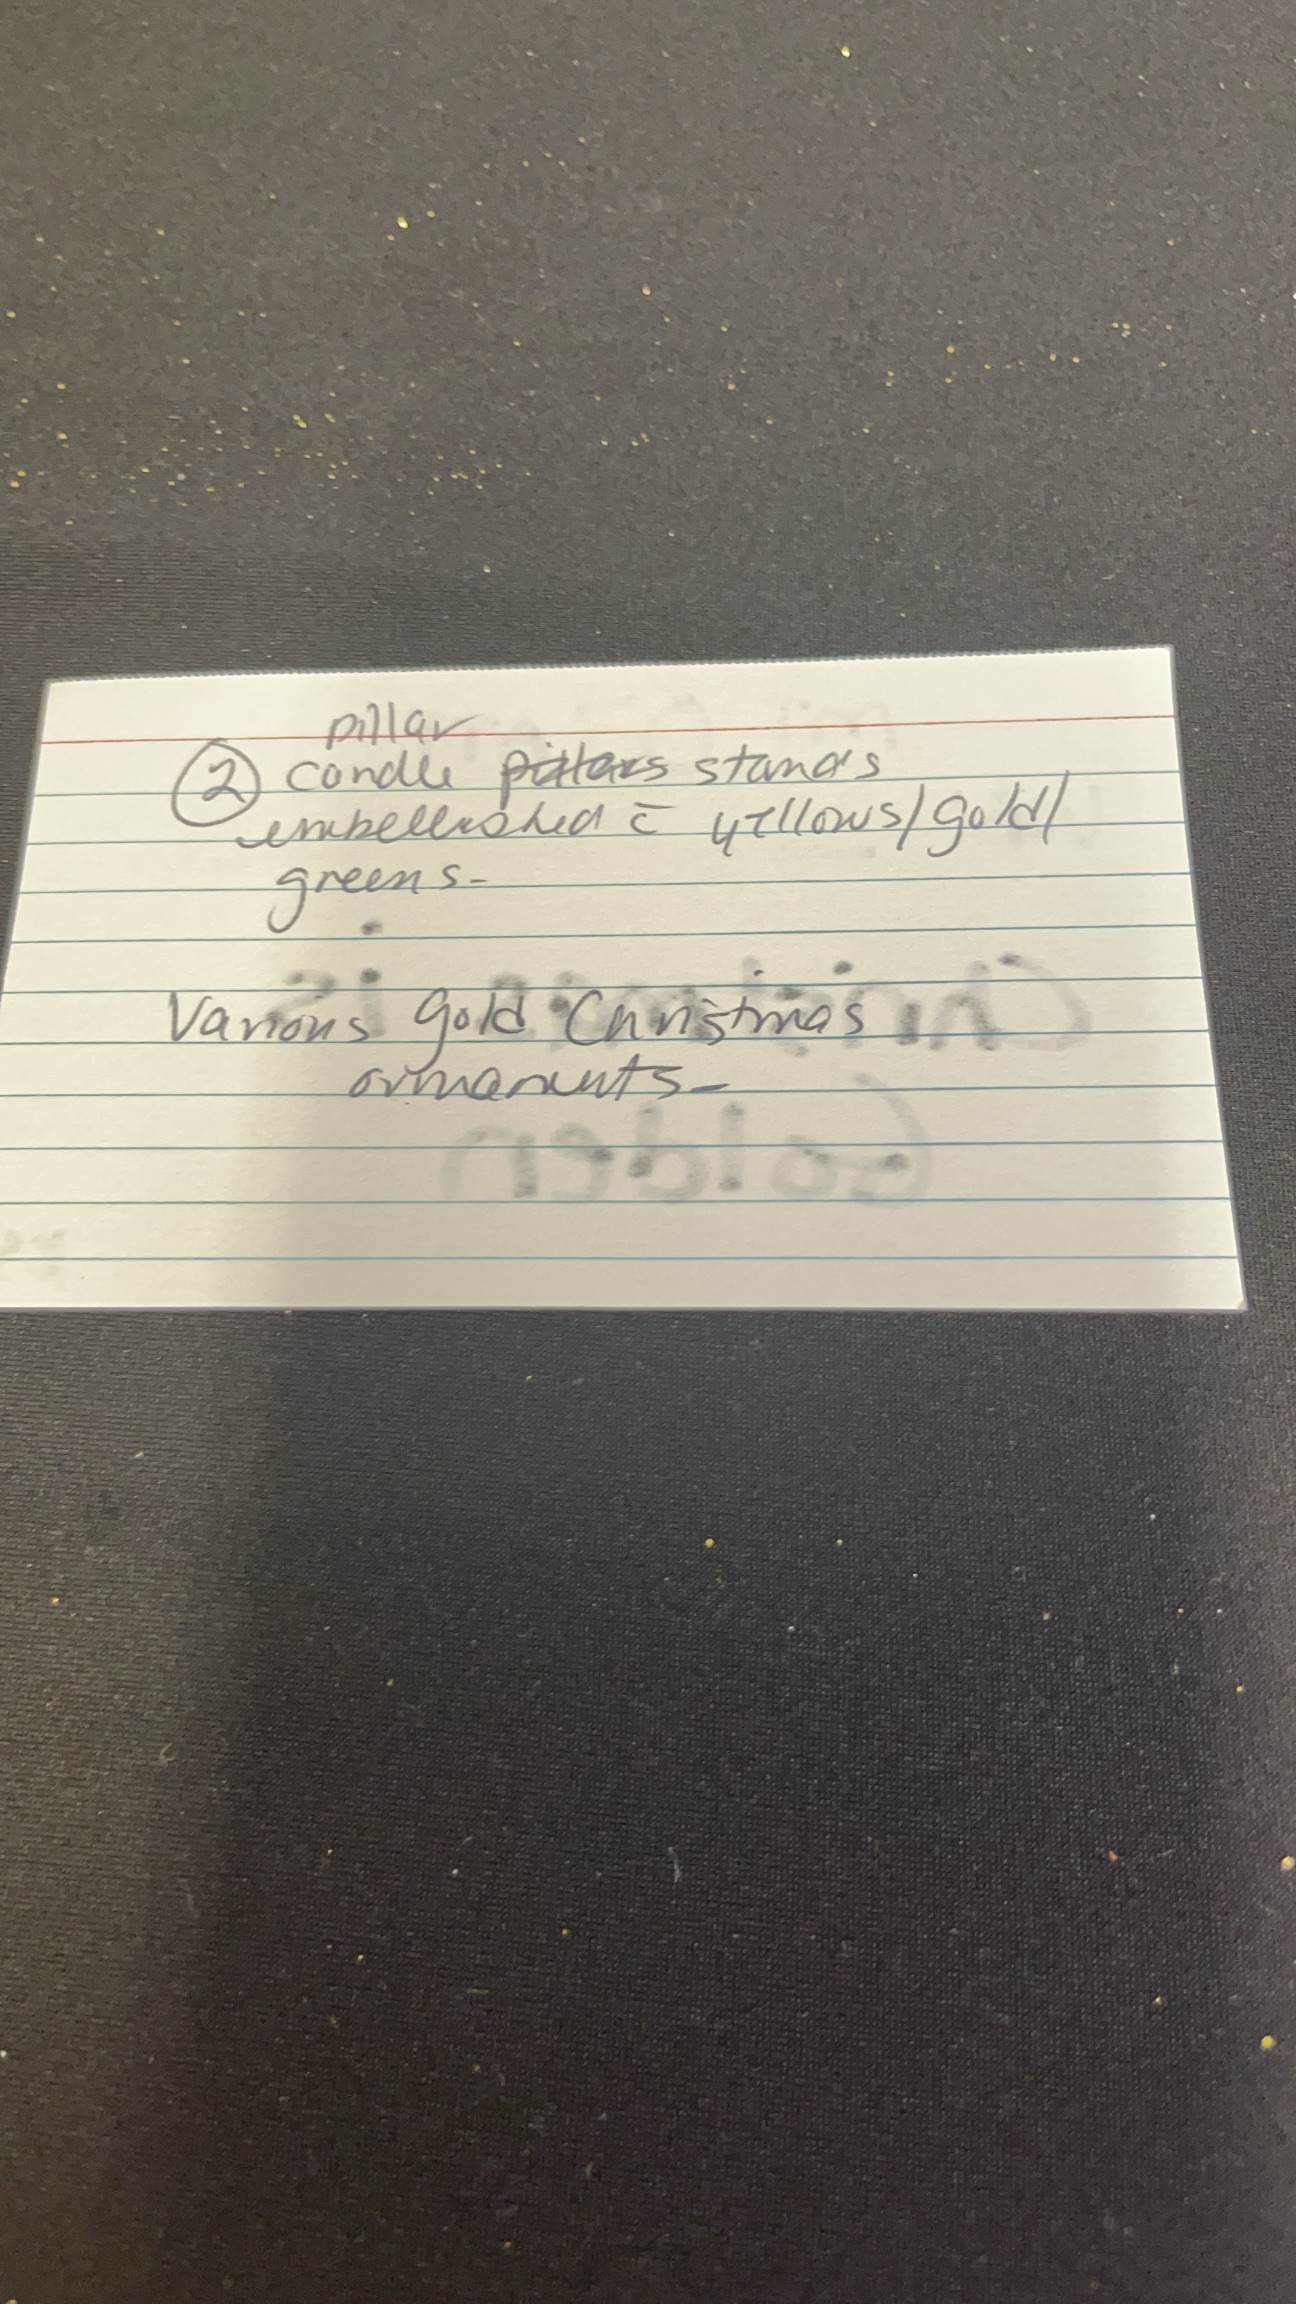 pillar
② candle pillars stands
embellished c̄ yellows/gold/
greens-
Various gold Christmas
ornaments-
Christmas is
Golden